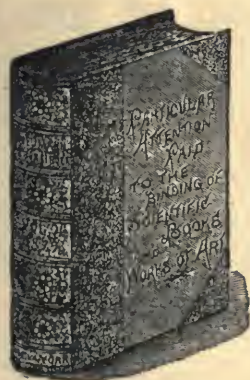 PARTICULAR
ATTENTION
PAID
TO THE
BINDING OF
SCIENTIFIC
BOOKS
&
WORKS OF ART